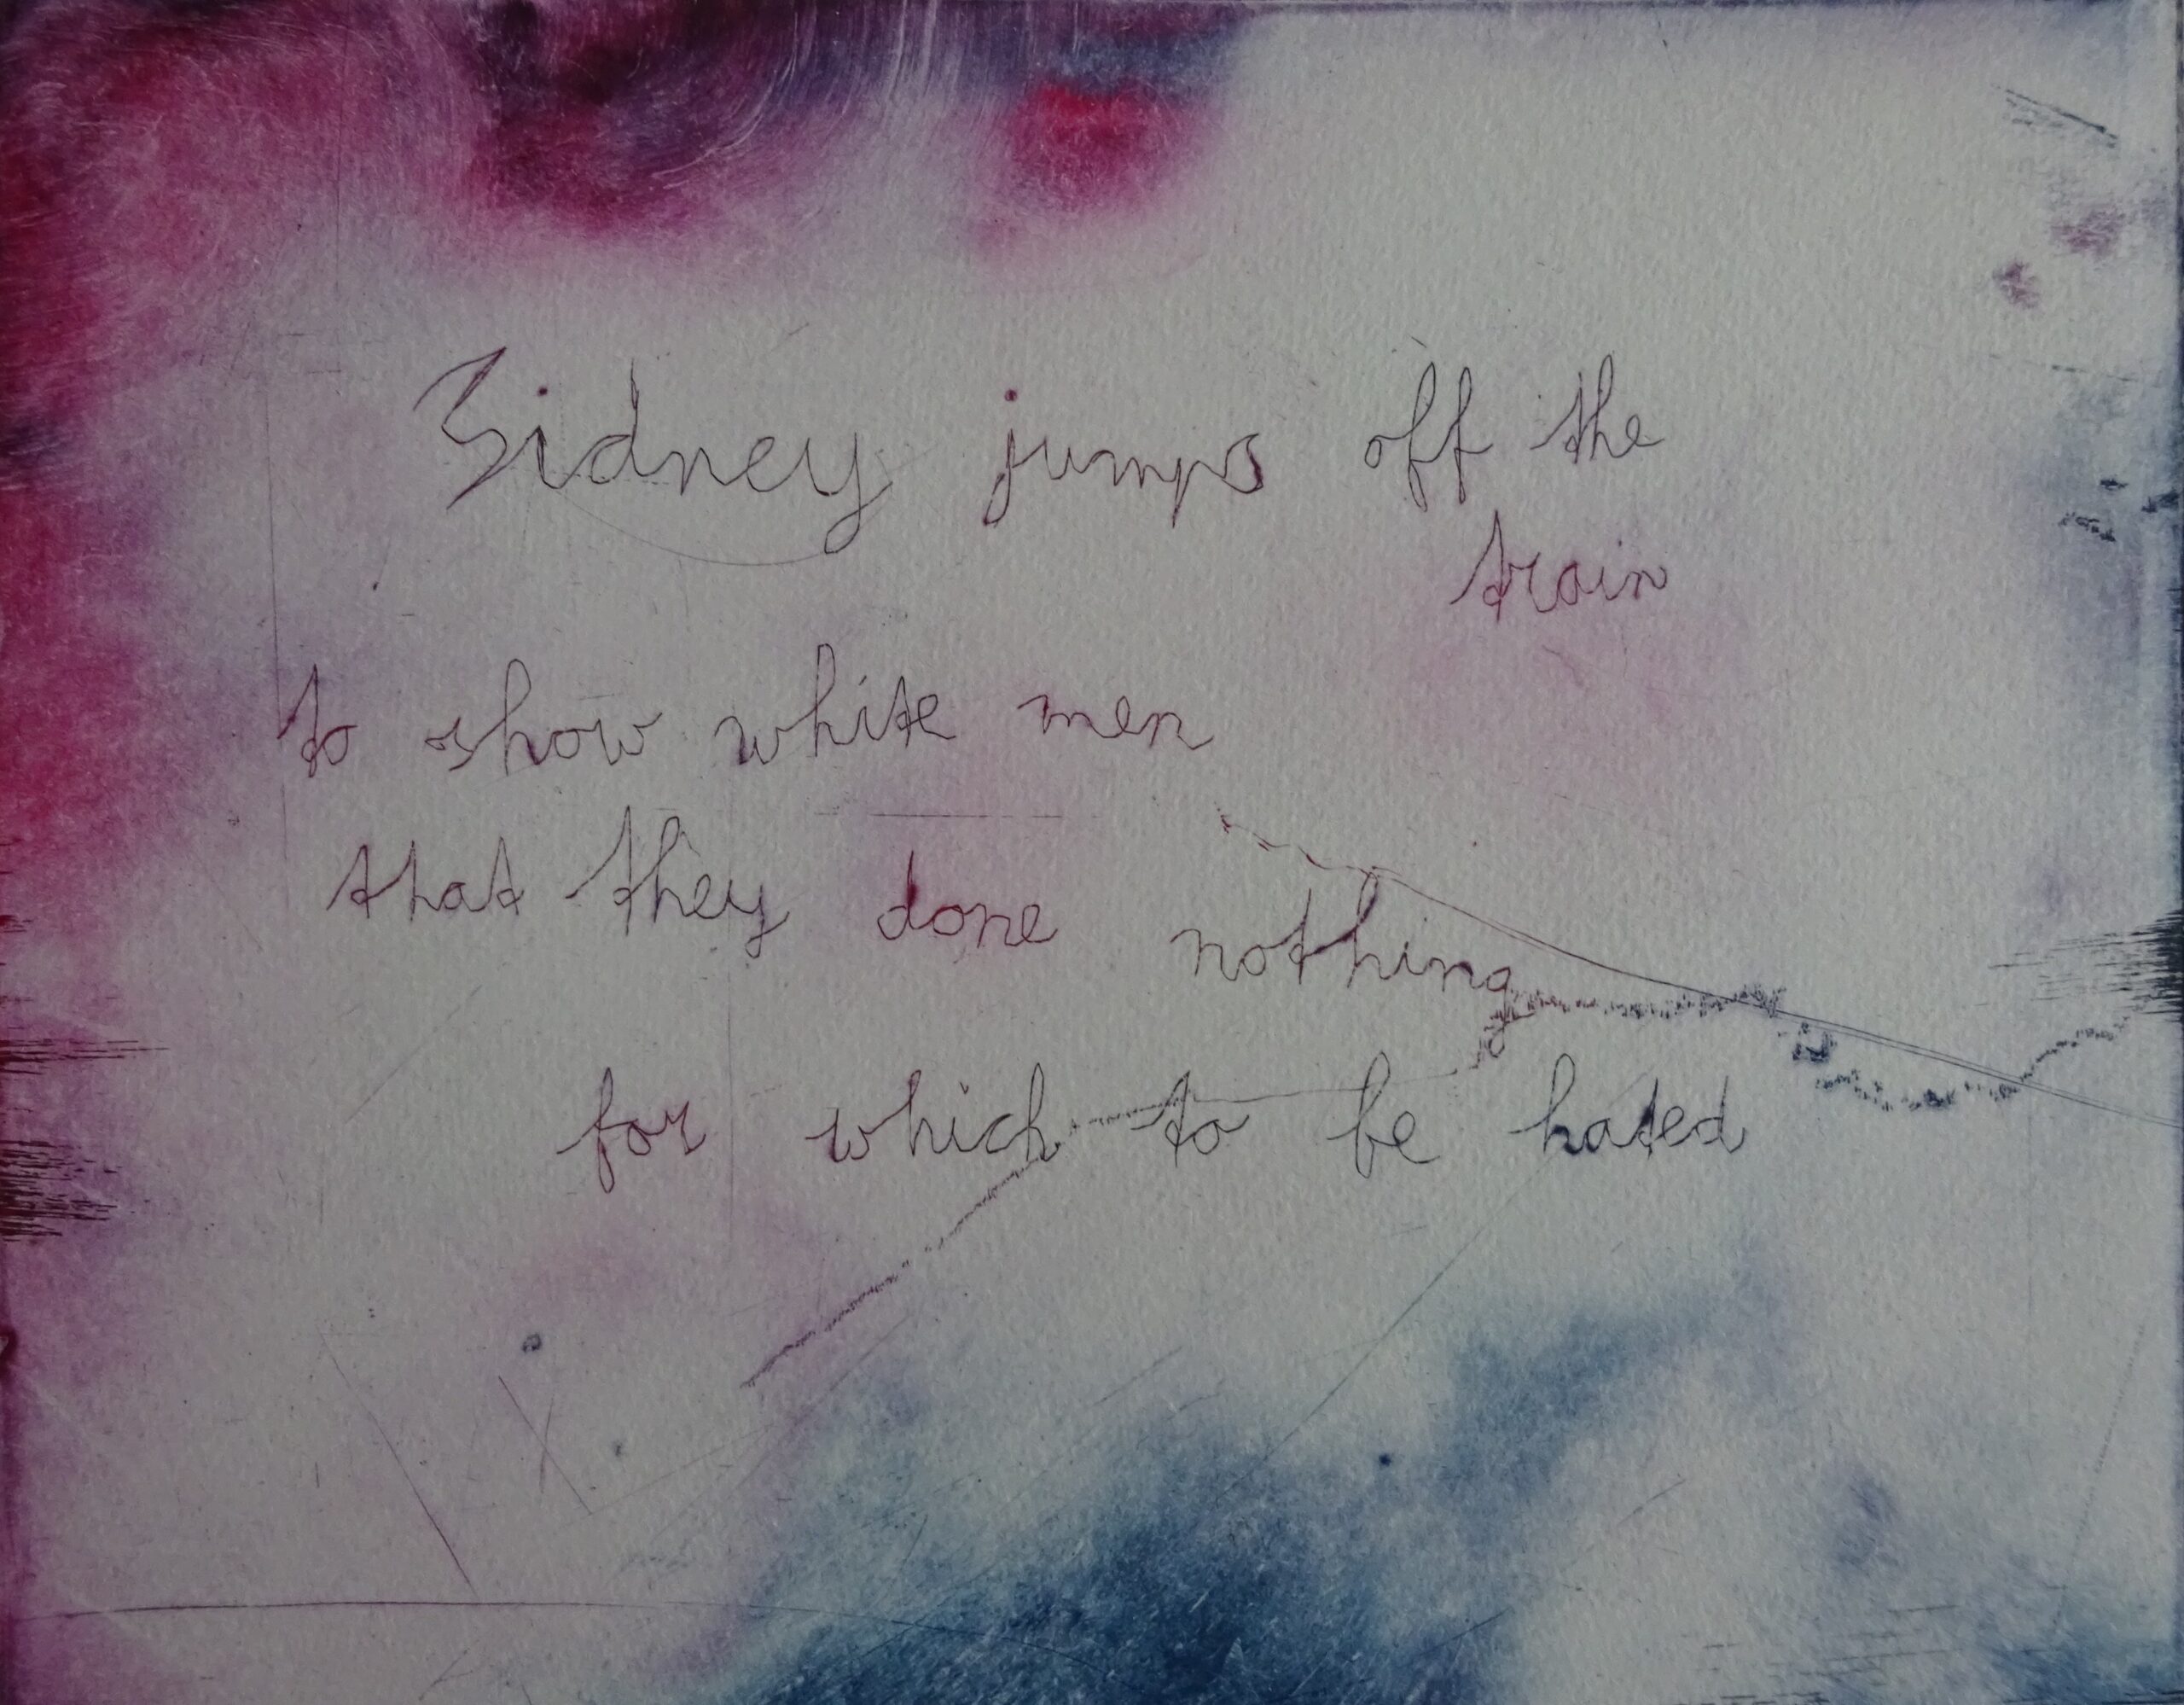 Sidney jumps off the
train
to show white men
that they done nothing
for which to be hated